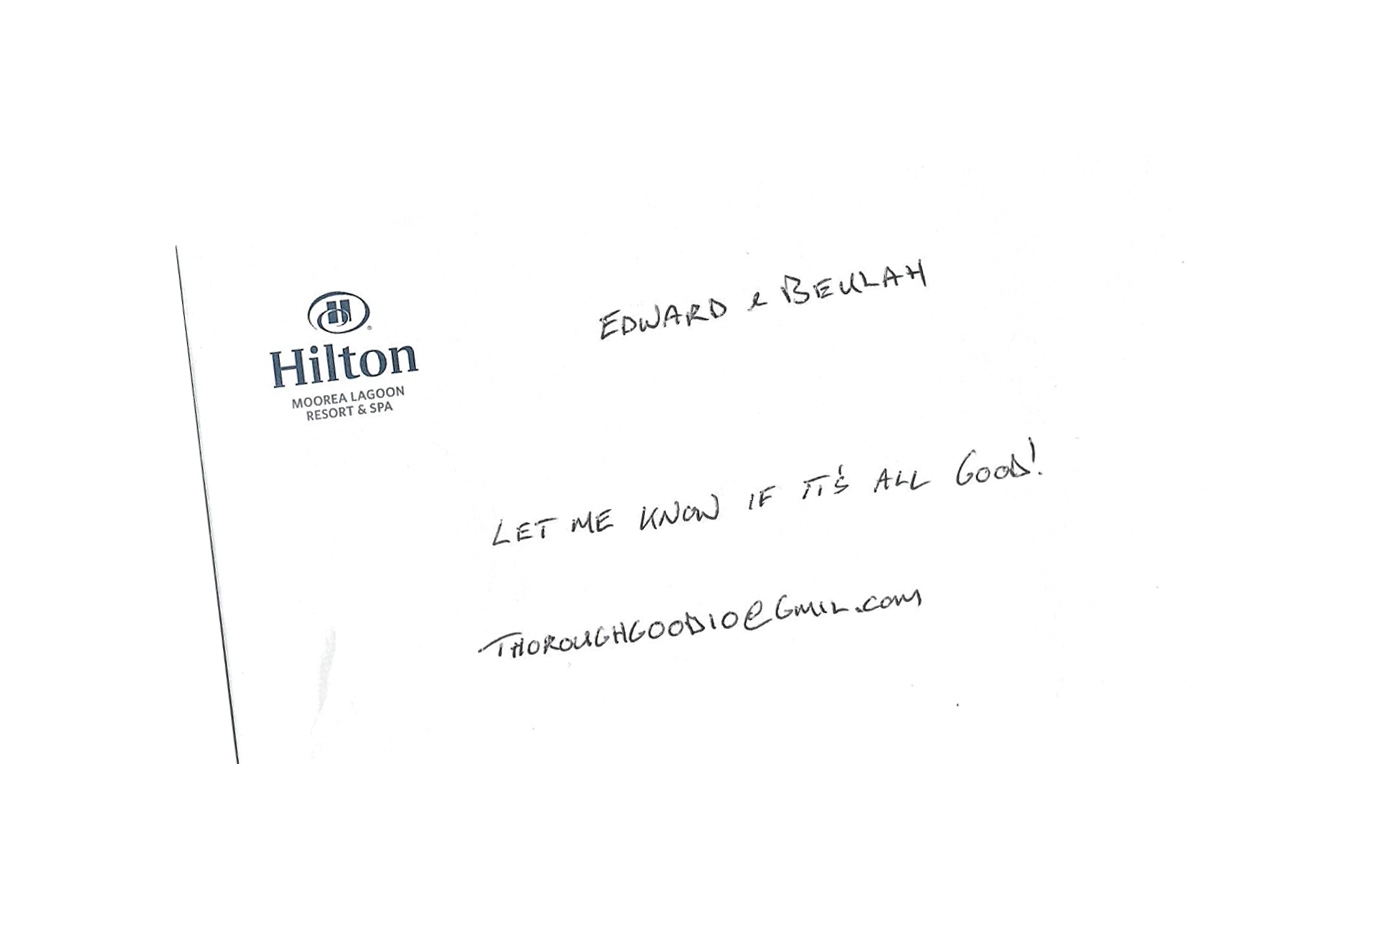 Hilton
MOOREA LAGOON
RESORT & SPA
EDWARD & BEULAH
LET ME KNOW IF IT'S ALL GOOD!
THOROUGHGOOD10@GMIL.COM